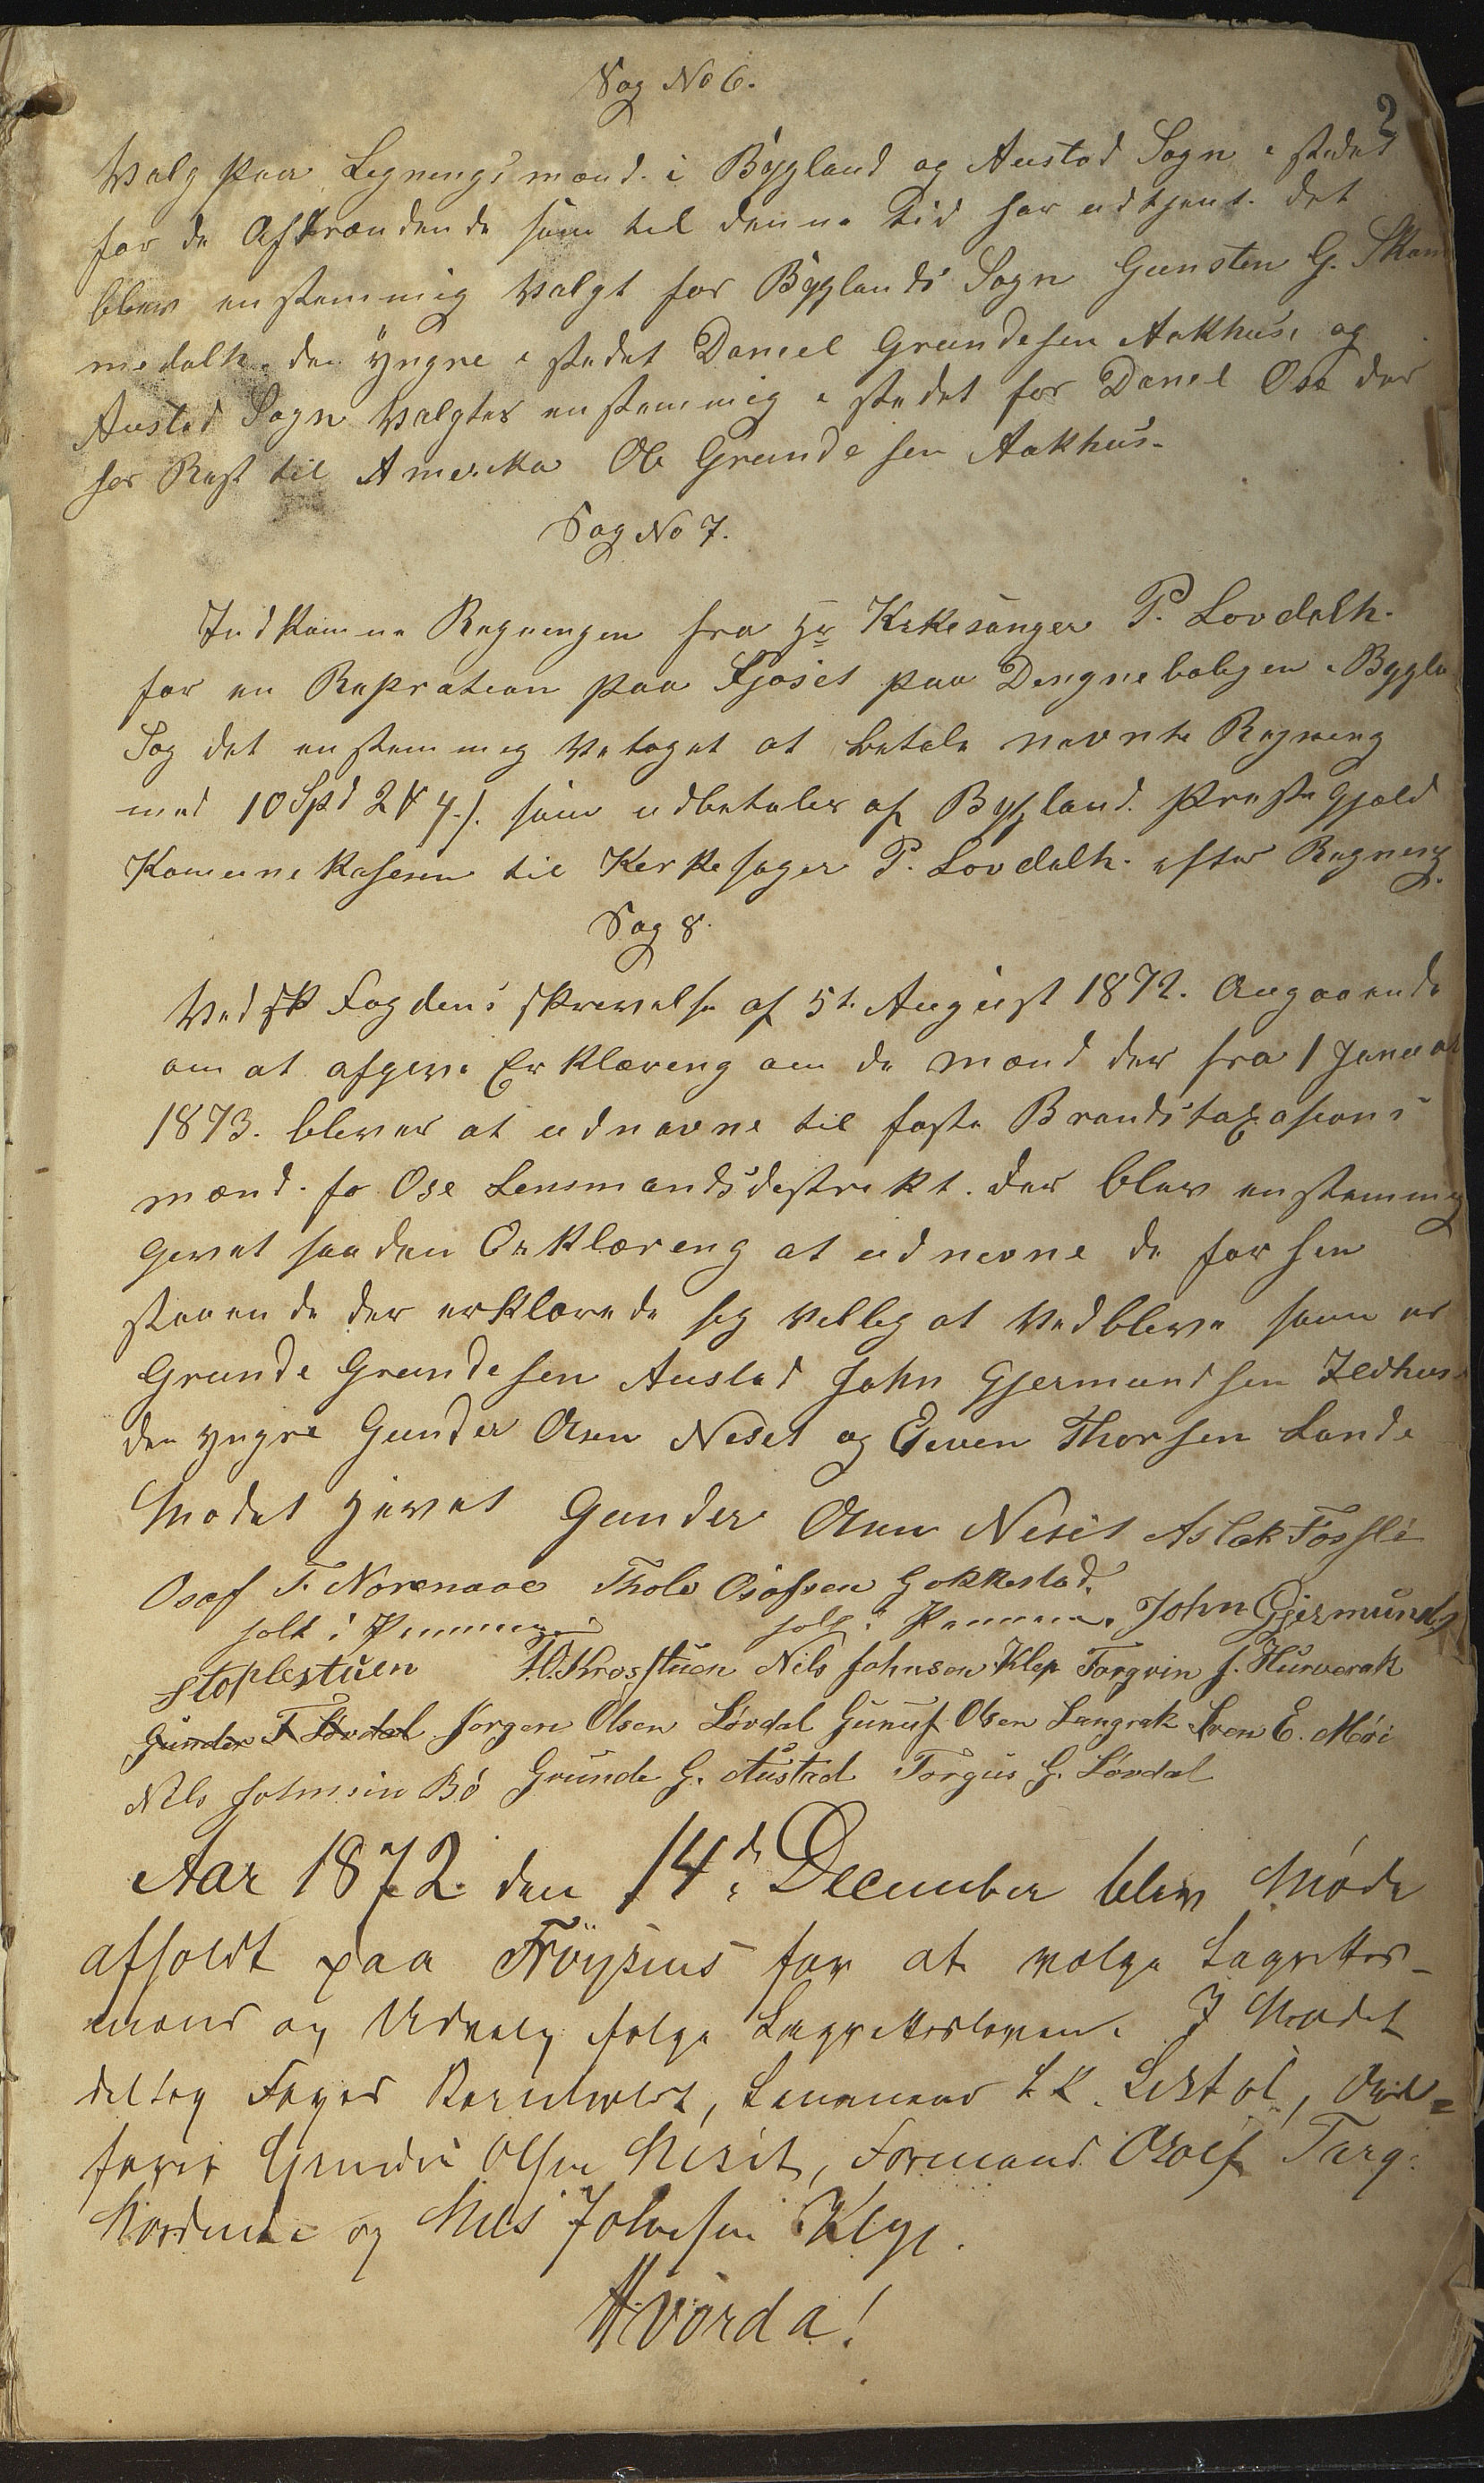 Sag No 6.
2
Valg paa Legningsmænd i Bygland og Austad Sogn i stedet
for de Aftrædende som til denne tid har udtjent. det
blev enstemmig Valgt for Byglands Sogn Gunsten G. Skam
medalh. den yngre i stedet Daneel Grundesen Aakhus, og
Austad Sogn Valgtes enstemmig i stedet for Danel Ose der
her Rest til Amerika Ole Grundesen Aakhus.
Sag No 7.
Indkomne Regningen fra Hr Kirkesanger P. Lovdalh.
for en Repration paa Fjøset paa Dengneboligen i Bygla
Sog det enstemmig Vetaget at betale nevnte Regneng
med 10 Spd 2 # 4 s. som udbetales af Bygland Prestegjæld
Komunekasen til Kerkesager P. Lovdalh. efter Regneng.
Sag 8.
Ved Fogdens skrevelse af 5t. August 1872. Angaaende
om at afgeve Erklæreng om de mænd der fra 1 Januar
1873. blever at udnævne til faste Brandstaxasions
mænd. fo Ose Lensmandsdestrekt. der blev enstemmig
gevet saaden Erklæreng at udnevne de forhen
staaende der erklærede seg velleg at Vedbleve som er
Grunde Grundesen Austad John Gjermundsen Zedhus
den yngre Gunder Olsen Neset og Eeven Thorsen Lande
Modet hevet Gunder Olsen Neset Aslak Fossli
Osaf T. Norenaae Thole Osafsen Gakkestad.
holt i Pennnen holt i Pennen. John Gjermunds
Stoplestuen H. Krosstuen Nils Johnson Klep Torgrin J. Hurverak
Gunder T Løvdal Jørgen Olsen Løvdal Gunuf Olsen Langrak Sven E. Møi
Nils Johnsen Bö Grunde G. Austad Torgus G. Løvdal
Aar 1872 den 14de December blev Møde
afholdt paa Fröysnes for at vælge Lagrettes-
mænd og Udvalg ifølge Lagrettesloven. I Mødet
deltog Foged Lensmand Ord=
fører Gunder Olsen Neset, Formand Osolf Targ.
og Nils Johnsen Klep.
Hvorda!